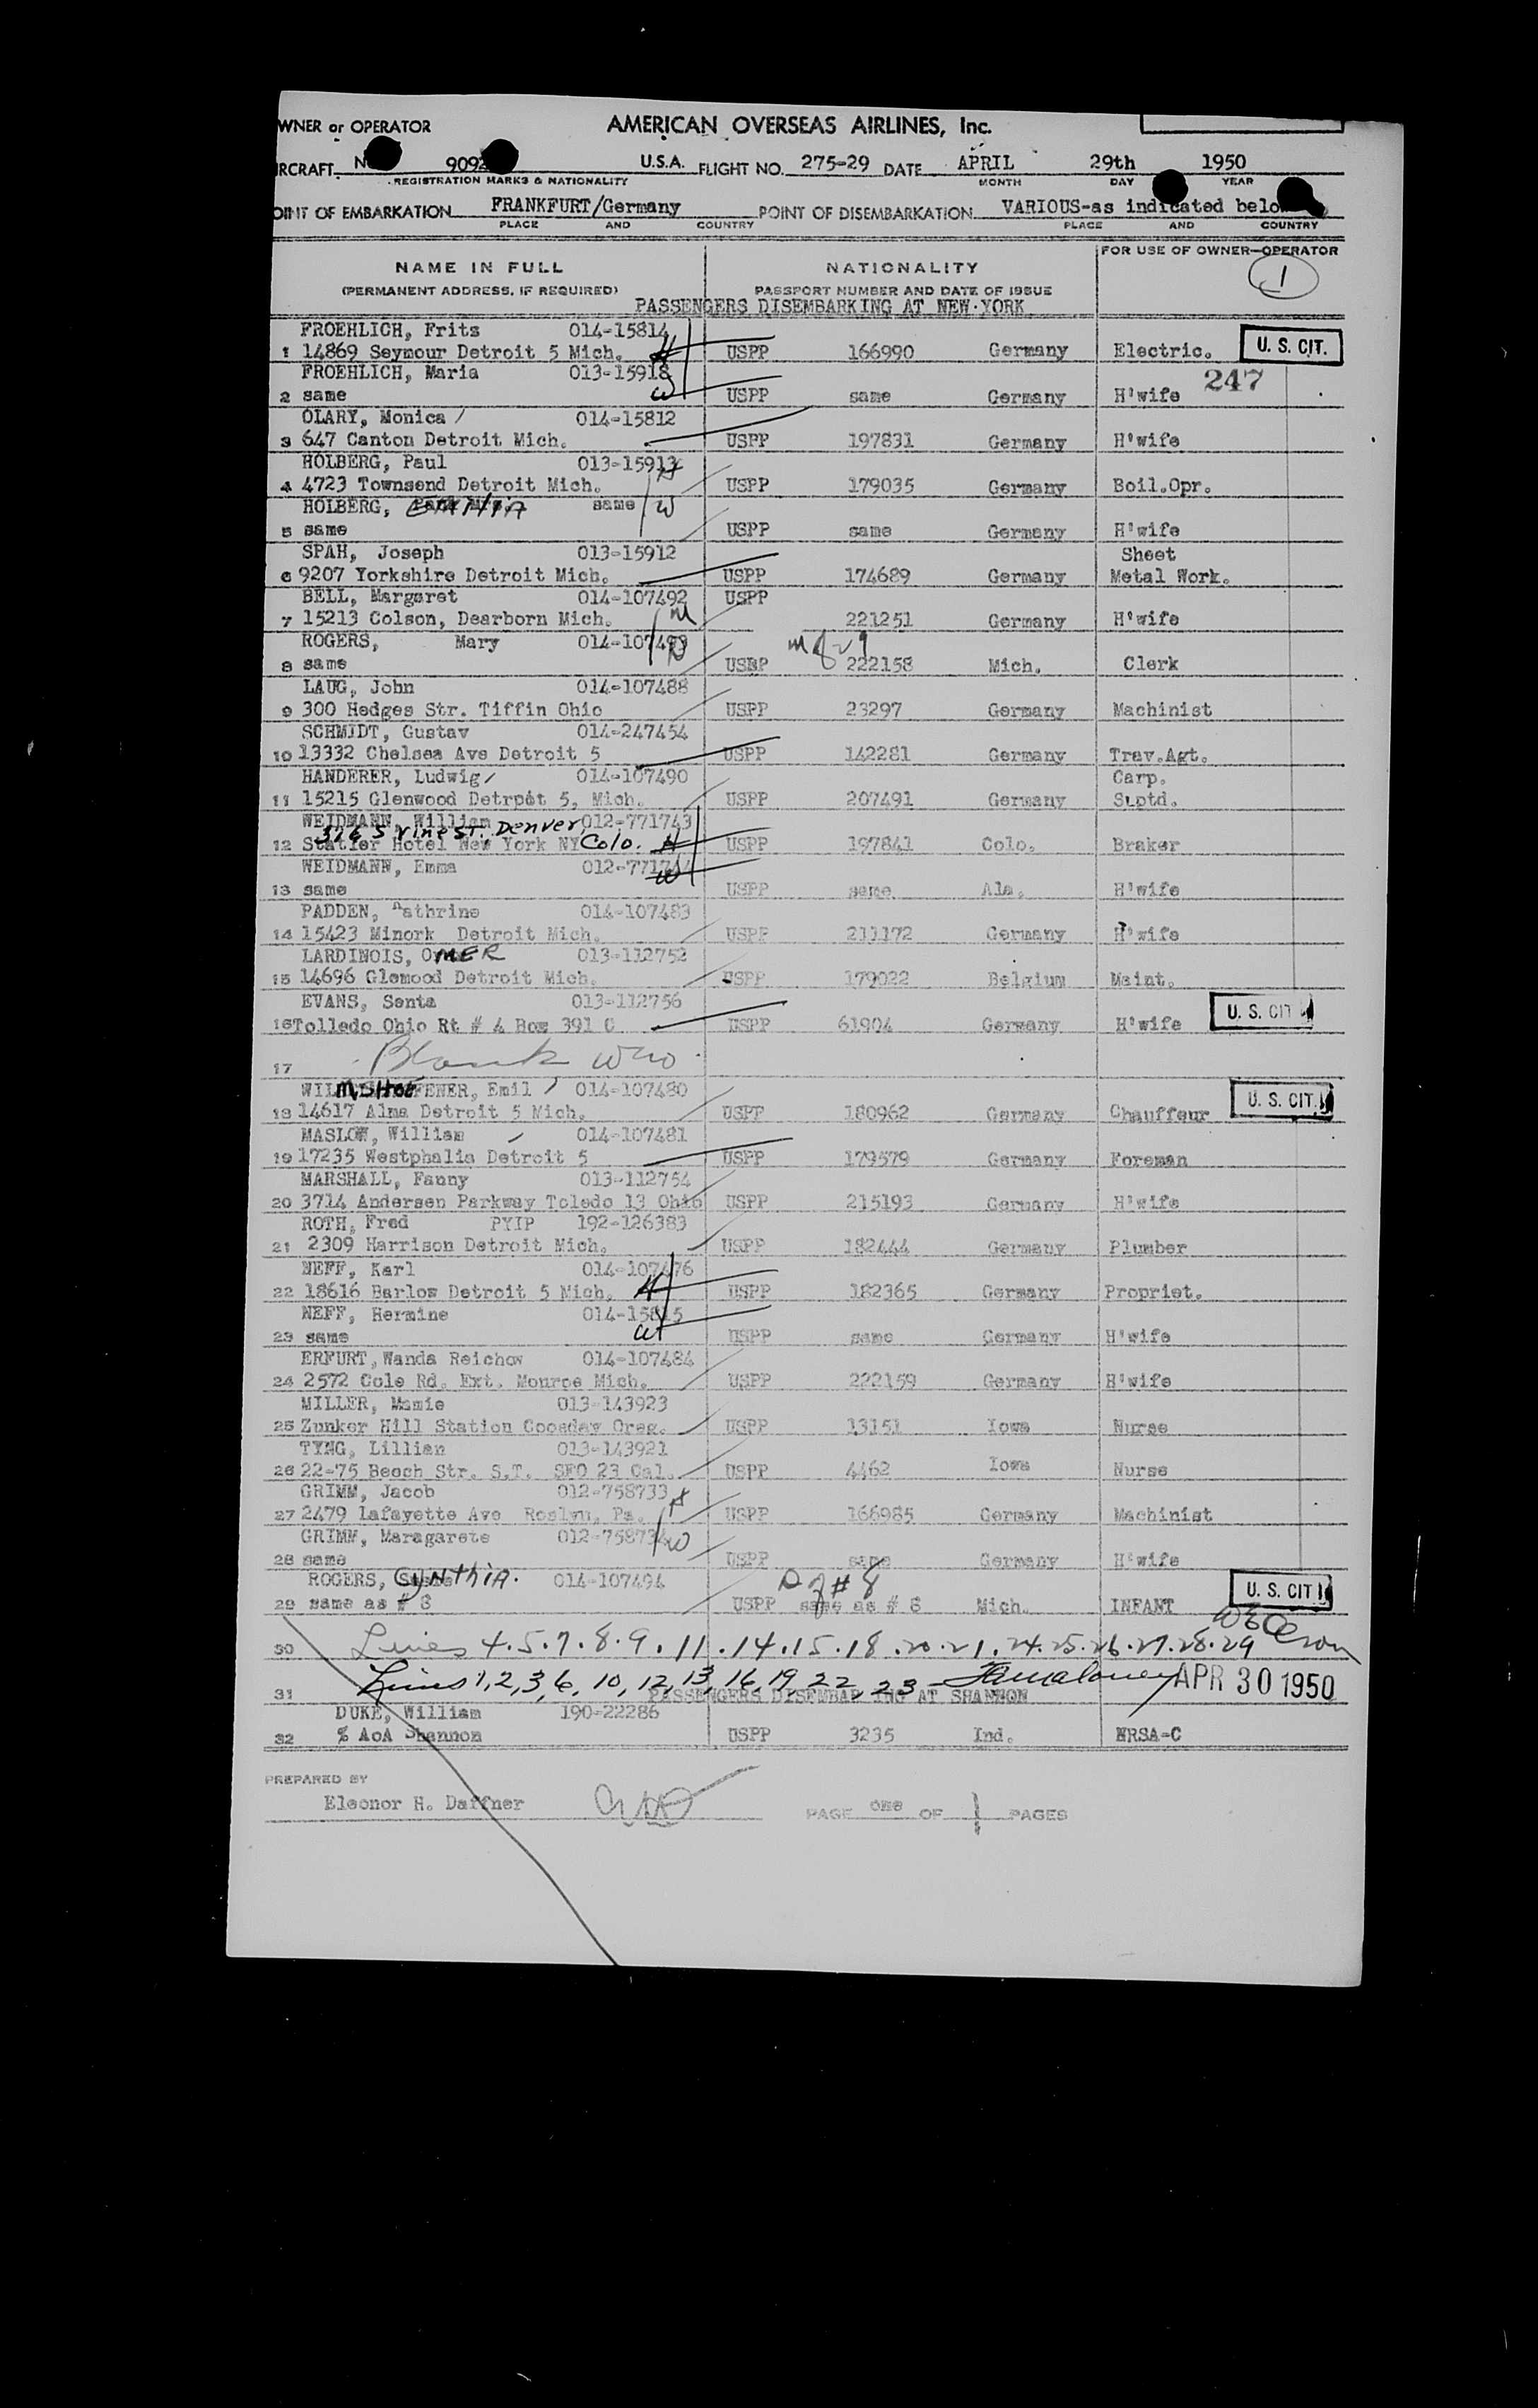 WNER or OPERATOR AMERICAN OVERSEAS AIRLINES, Inc.
IRCRAFT. N 9092 U.S.A. FLIGHT NO. 275-29 DATE APRIL 29th 1950
REGISTRATION MARKS & NATIONALITY MONTH DAY YEAR
OINT OF EMBARKATION FRANKFURT/Germany POINT OF DISEMBARKATION VARIOUS-as indicated below
PLACE AND COUNTRY PLACE AND COUNTRY
NAME IN FULL NATIONALITY FOR USE OF OWNER-OPERATOR
(PERMANENT ADDRESS, IF REQUIRED) PASSPORT NUMBER AND DATE OF ISSUE 1
PASSENGERS DISEMBARKING AT NEW YORK
FROEHLICH, Frits 014-15814
1 14869 Seymour Detroit 5 Mich. H USPP 166990 Germany Electric. U. S. CIT.
FROEHLICH, Maria 013-15918 247
2 same W USPP same Germany H'wife
OLARY, Monica / 014-15812
3 647 Canton Detroit Mich. USPP 197831 Germany H'wife
HOLBERG, Paul 013-15913 H
4 4723 Townsend Detroit Mich. USPP 179035 Germany Boil.Opr.
HOLBERG, same W
5 same USPP same Germany H'wife
SPAH, Joseph 013-15912 Sheet
6 9207 Yorkshire Detroit Mich. USPP 174689 Germany Metal Work.
BELL, Margaret 014-107492 USPP
7 15213 Colson, Dearborn Mich. M 221251 Germany H'wife
ROGERS, Mary 014-107493 D M of 29
8 same USPP 222158 Mich. Clerk
LAUG, John 014-107488
9 300 Hedges Str. Tiffin Ohio USPP 23297 Germany Machinist
SCHMIDT, Gustav 014-247454
10 13332 Chelsea Ave Detroit 5 USPP 142281 Germany Trav.Agt.
HANDERER, Ludwig / 014-107490 Carp.
11 15215 Glenwood Detrpét 5, Mich. USPP 207491 Germany Suptd.
WEIDMANN, William 012-771743
376 S Vine ST. Denver
12 Statler Hotel New York NY Colo. H USPP 197841 Colo. Braker
WEIDMANN, Emma 012-771744
13 same W USPP same Ala. H'wife
PADDEN, Kathrine 014-107483
14 15423 Minork Detroit Mich. USPP 211172 Germany H'wife
LARDINOIS, OMER 013-112752
15 14696 Glemood Detroit Mich. USPP 179022 Belgium Maint.
EVANS, Senta 013-112756
16 Tolledo Ohio Rt # 4 Box 391 C USPP 61904 Germany H'wife U. S. CIT
17 Blank
FENER, Emil / 014-107480
18 14617 Alma Detroit 5 Mich. USPP 180962 Germany Chauffeur U. S. CIT.
MASLOW, William / 014-107481
19 17235 Westphalia Detroit 5 USPP 179579 Germany Foreman
MARSHALL, Fanny 013-112754
20 3714 Andersen Parkway Toledo 13 Ohio USPP 215193 Germany H'wife
ROTH, Fred PYIP 192-126383
21 2309 Harrison Detroit Mich. USPP 182444 Germany Plumber
NEFF, Karl 014-107476
22 18616 Barlow Detroit 5 Mich. H USPP 182365 Germany Propriet.
NEFF, Hermine 014-15815
23 same W USPP same Germany H'wife
ERFURT, Wanda Reichow 014-107484
24 2572 Cole Rd. Ext. Monroe Mich. USPP 222159 Germany H'wife
MILLER, Mamie 013-143923
25 Zunker Hill Station Coosday Oreg. USPP 13151 Iowa Nurse
TYNG, Lillian 013-143921
26 22-75 Beach Str. S.T. SFO 23 Cal. USPP 4462 Iowa Nurse
GRIMM, Jacob 012-758733 H
27 2479 Lafayette Ave Roslyn, Pa. USPP 166985 Germany Machinist
GRIMM, Maragarete 012-758734 W
28 same USPP same Germany H'wife
ROGERS, CYNthiA. 014-107494 D of # 8
29 same as # 8 USPP same as # 8 Mich. INFANT U. S. CIT
30 Lines 4.5.7.8.9.11.14.15.18.20.21.24.25.26.27.28.29
31 Lines 1,2,3,6,10,12,13,16,19,22,23 - APR 30 1950
PASSENGERS DISEMBARKING AT SHANNON
DUKE, William 190-22286
32 % AoA Shannon USPP 3235 Ind. WRSA-C
PREPARED BY
Eleonor H. Daffner PAGE one OF 1 PAGES